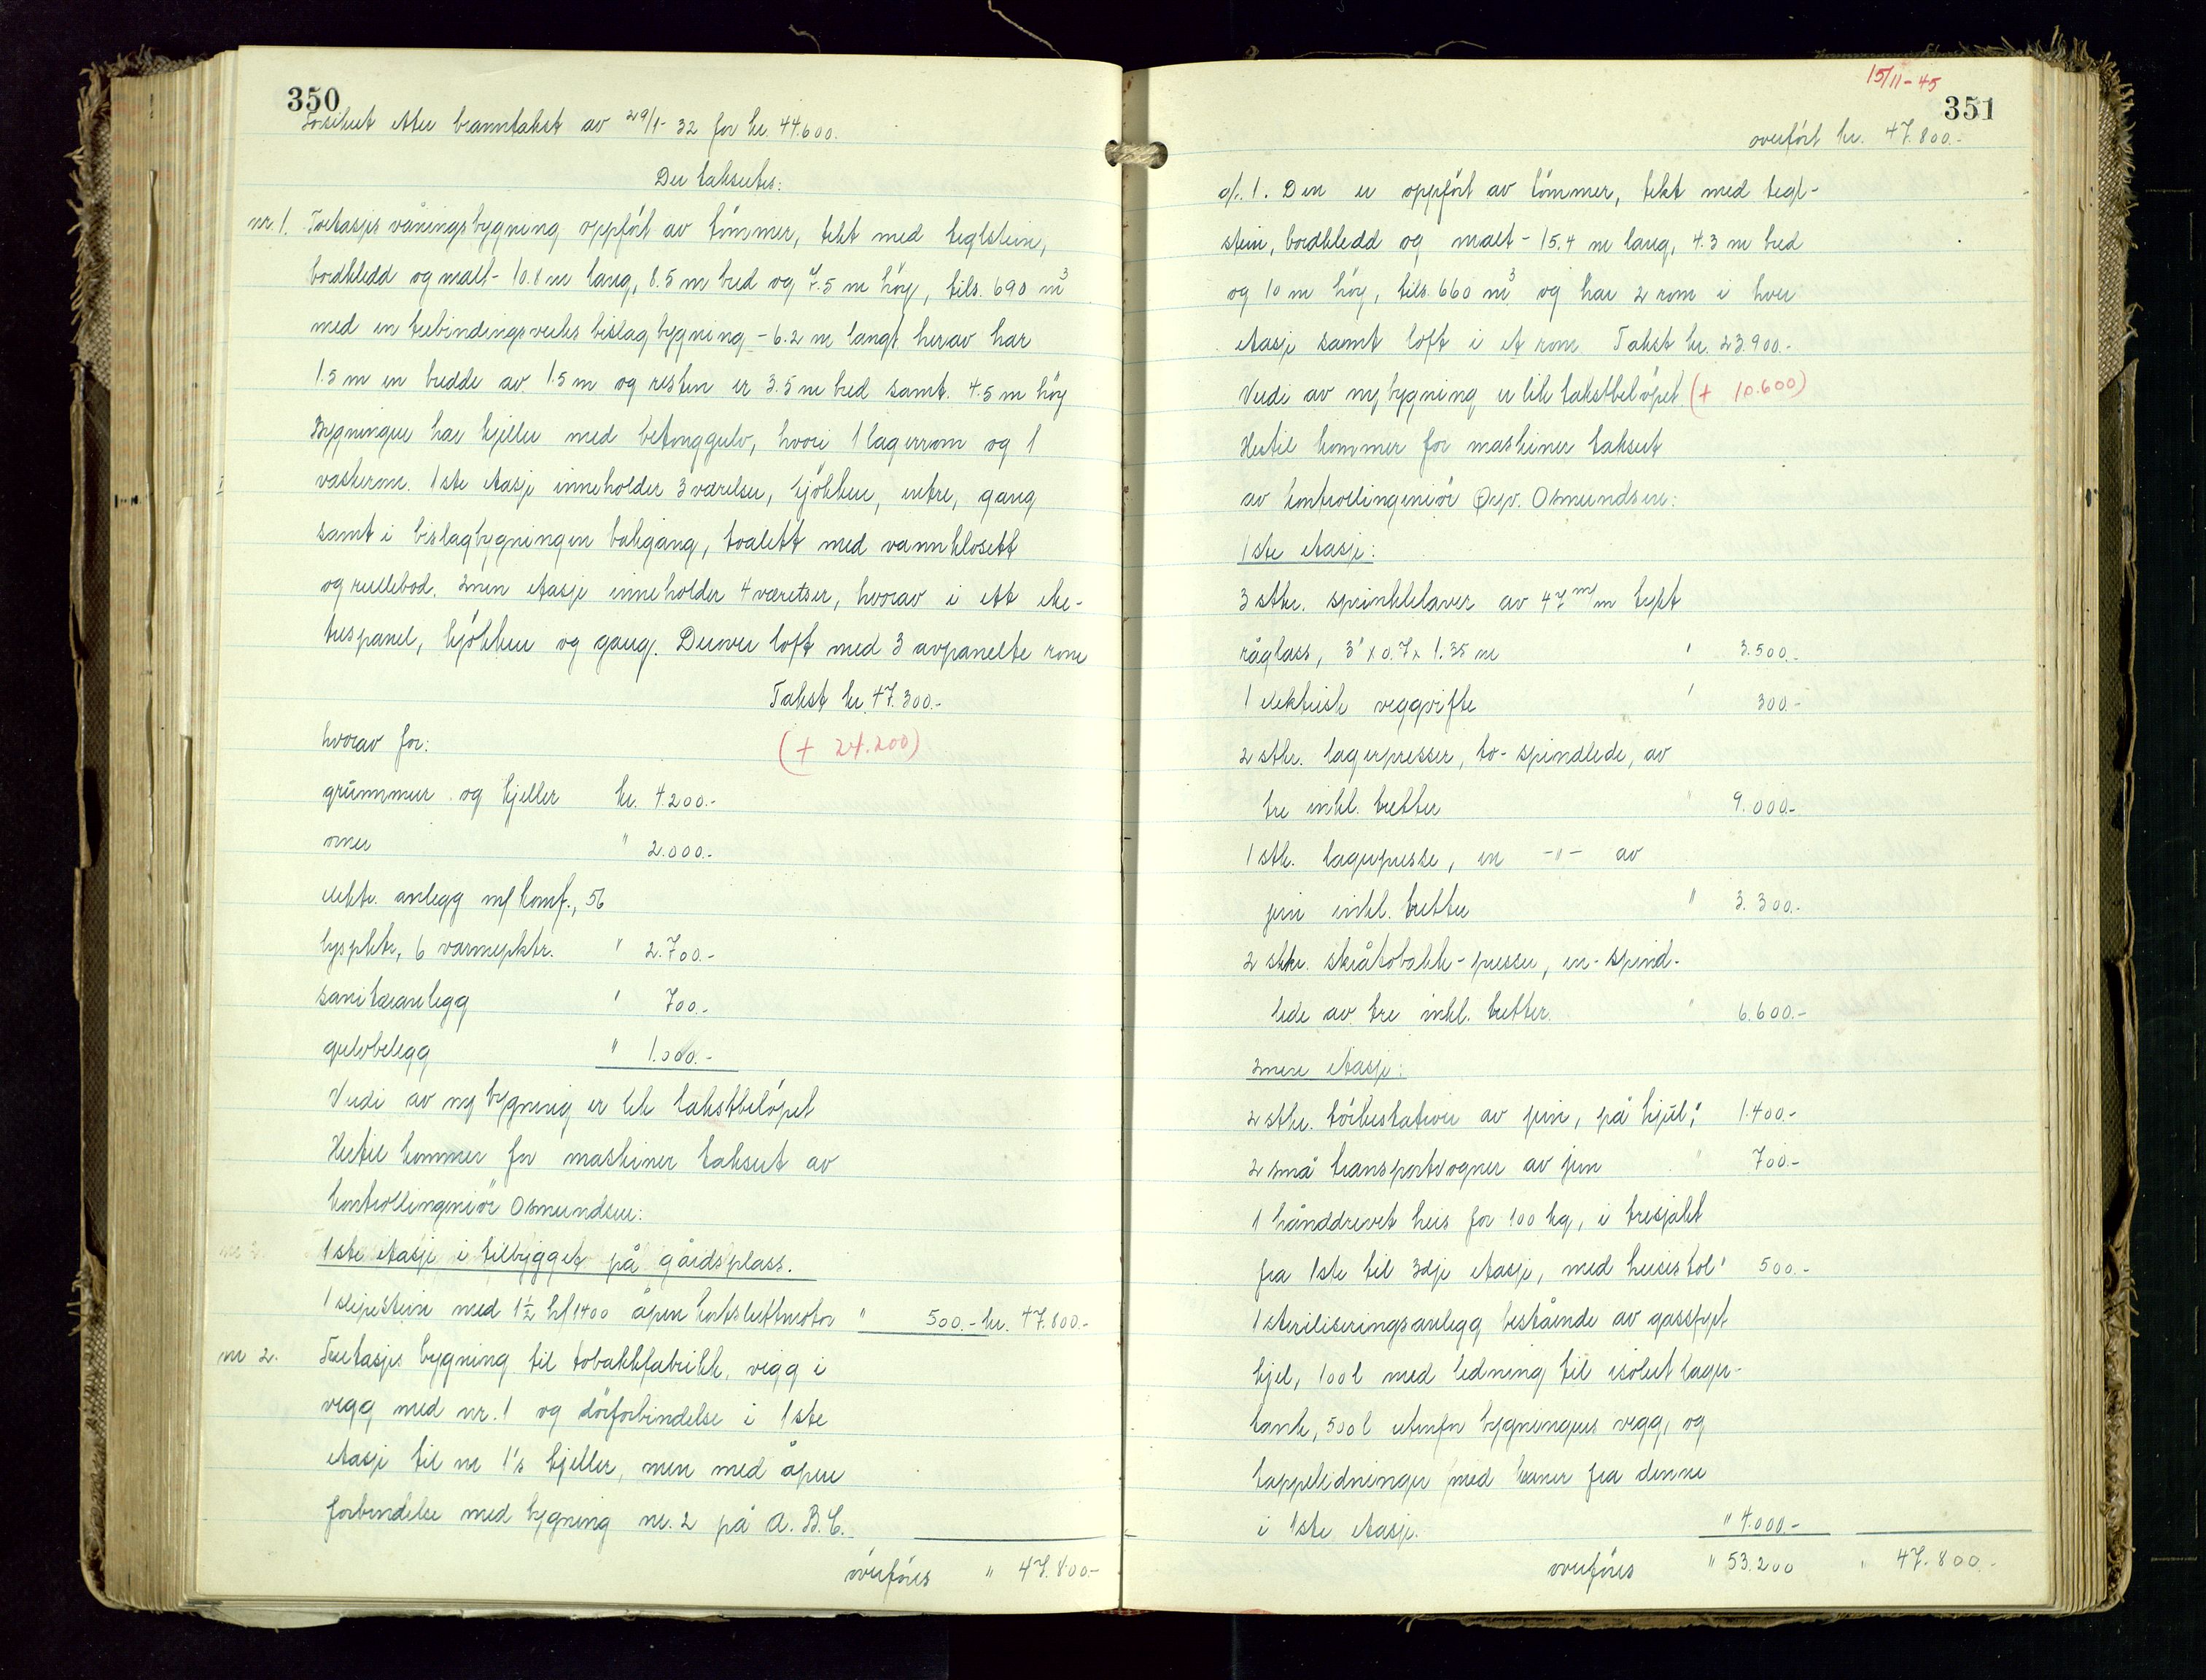 350
Forsikret etter branntakst av 29/1-32 for kr. 44.600.
Der takseres:
nr. 1. Toetasjes våningsbygning oppført av tömmer, tekt med teglstein,
bordkledd og malt - 10.8 m lang, 8.5 m bred og 7.5 m höy, tils. 690 m³
med en trebindingsverks bislagbygning - 6.2 m langt herav har
1.5 m en bredde av 1.5 m og resten er 3.5 m bred samt 4.5 m höy
Bygningen har kjeller med betonggulv, hvori 1 lagerrom og 1
vaskerom. 1ste etasje inneholder 3 værelser, kjökken, entre, gang
samt i bislagbygningen bakgang, toalett med vannklosett
og rullebod. 2nen etasje inneholder 4 værelser, hvorav i ett eke-
trespanel, kjökken og gang. Derover loft med 3 avpanelte rom
Takst kr. 47.300.-
hvorav for: (+ 24.200)
grunnmur og kjeller kr. 4.200.-
ovner " 2.000.-
elektr. anlegg m/komf., 56
lyspktr, 6 varmepktr. " 2.700.-
sanitæranlegg " 700.-
gulvbelegg " 1.000.-
Verdi av ny bygning er lik takstbelöpet
Hertil kommer for maskiner taksert av
kontrollingeniör Osmundsen:
1ste etasje i tilbygget på gårdsplass.
1 slipestein med 1½ hk 1400 åpen kortsluttmotor " 500.- kr. 47.800.-
nr 2. Treetasjes bygning til tobakkfabrikk, vegg i
vegg med nr. 1 og dörforbindelse i 1ste
etasje til nr 1's kjeller, men med åpen
forbindelse med bygning nr. 2 på A.B.C.
överföres " 47.800.-
15/11-45
351
overfört kr. 47.800.-
gl. 1. Den er oppfört av tömmer, tekt med tegl-
stein, bordkledd og malt - 15.4 m lang, 4.3 m bred
og 10 m höy, tils. 660 m³ og har 2 rom i hver
etasje samt loft i et rom. Takst kr. 23.900.-
Verdi av ny bygning er lik takstbelöpet (+ 10.600)
Hertil kommer for maskiner taksert
av kontrollingeniör Osmundsen:
1ste etasje:
3 stkr. sprinklelaver av 47 m/m tykt
råglass, 3' x 0.7 x 1.35 m " 3.500.-
1 elektrisk veggvifte " 300.-
2 stkr. lagerpresser, to-spindlede, av
tre inkl. bretter " 9.000.-
1 stk. lagerpresse, en -"- av
jern inkl. bretter " 3.300.-
2 stkr. skråtobakk-presser, en-spind-
lede av tre inkl. bretter. " 6.600.-
2nen etasje:
2 stkr. törkestativer av jern, på hjul, " 1.400.-
2 små transportvogner av jern " 700.-
1 hånddrevet heis for 100 kg, i tresjakt
fra 1ste til 3dje etasje, med heisestol " 500.-
1 steriliseringsanlegg bestående av gassfyrt
kjel, 100 l med ledning til isolert lager-
tank, 500 l utenfor bygningens vegg, og
tappeledninger med kraner fra denne
i 1ste etasje. " 4.000.-
overföres " 53.200 " 47.800.-